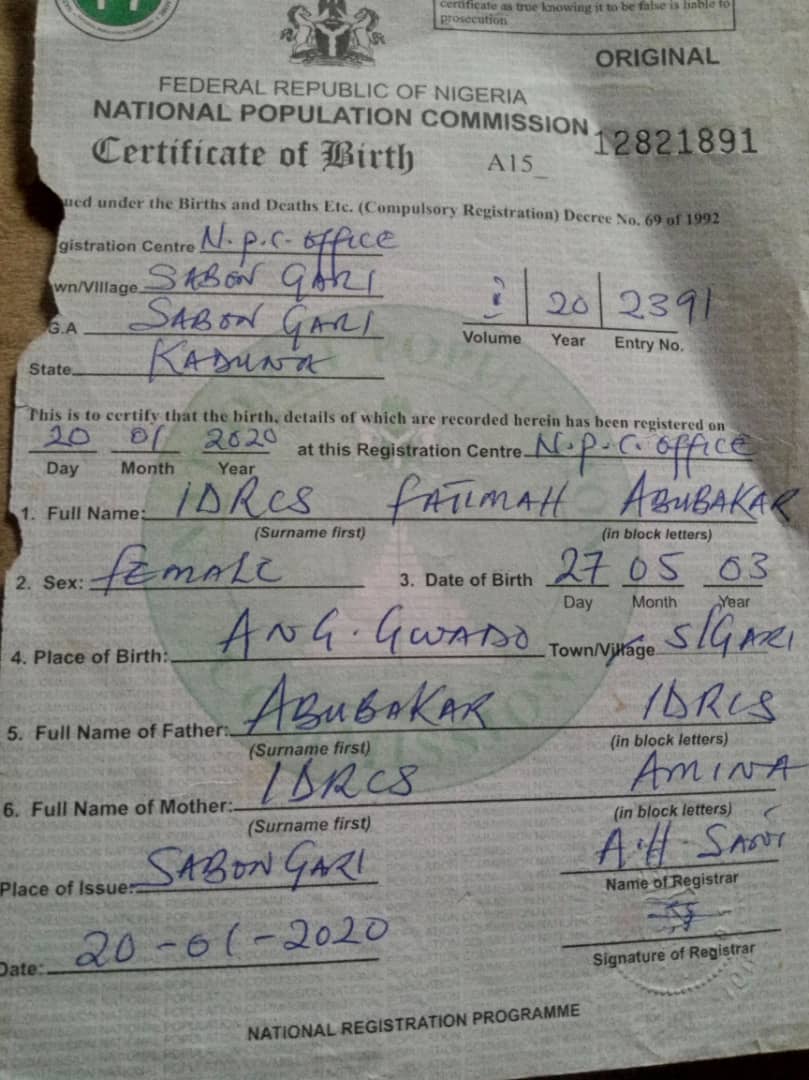 certificate as true knowing it to be false is liable to
prosecution
ORIGINAL
FEDERAL REPUBLIC OF NIGERIA
NATIONAL POPULATION COMMISSION
12821891
Certificate of Birth A15_
ued under the Births and Deaths Etc. (Compulsory Registration) Decree No. 69 of 1992
gistration Centre N.P.C. OFFICE
wn/Village SABON GARI
G.A SABON GARI
20 2391
Volume Year Entry No.
State KADUNA
This is to certify that the birth, details of which are recorded herein has been registered on
20 01 2020 at this Registration Centre N.P.C. OFFICE
Day Month Year
1. Full Name: IDRCS FATIMAH ABUBAKAR
(Surname first) (in block letters)
2. Sex: FEMALE 3. Date of Birth 27 05 03
Day Month Year
4. Place of Birth: ANG. GWADO Town/Village S/GARI
5. Full Name of Father: ABUBAKAR IDRIS
(Surname first) (in block letters)
6. Full Name of Mother: IDRCS AMINA
(Surname first) (in block letters)
A.H. SANI
Place of Issue: SABON GARI
Name of Registrar
Date: 20-01-2020
Signature of Registrar
NATIONAL REGISTRATION PROGRAMME